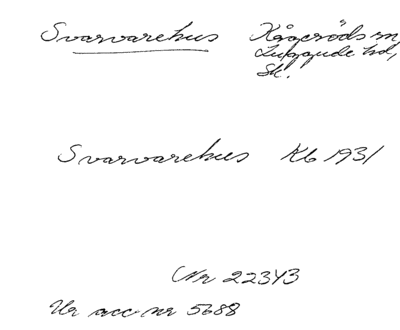 Svarvarehus Kågeröds sn,
Luggude hd,
Sk.
Svarvarehus Kb 1931
Nr 22343
Ur acc nr 5688